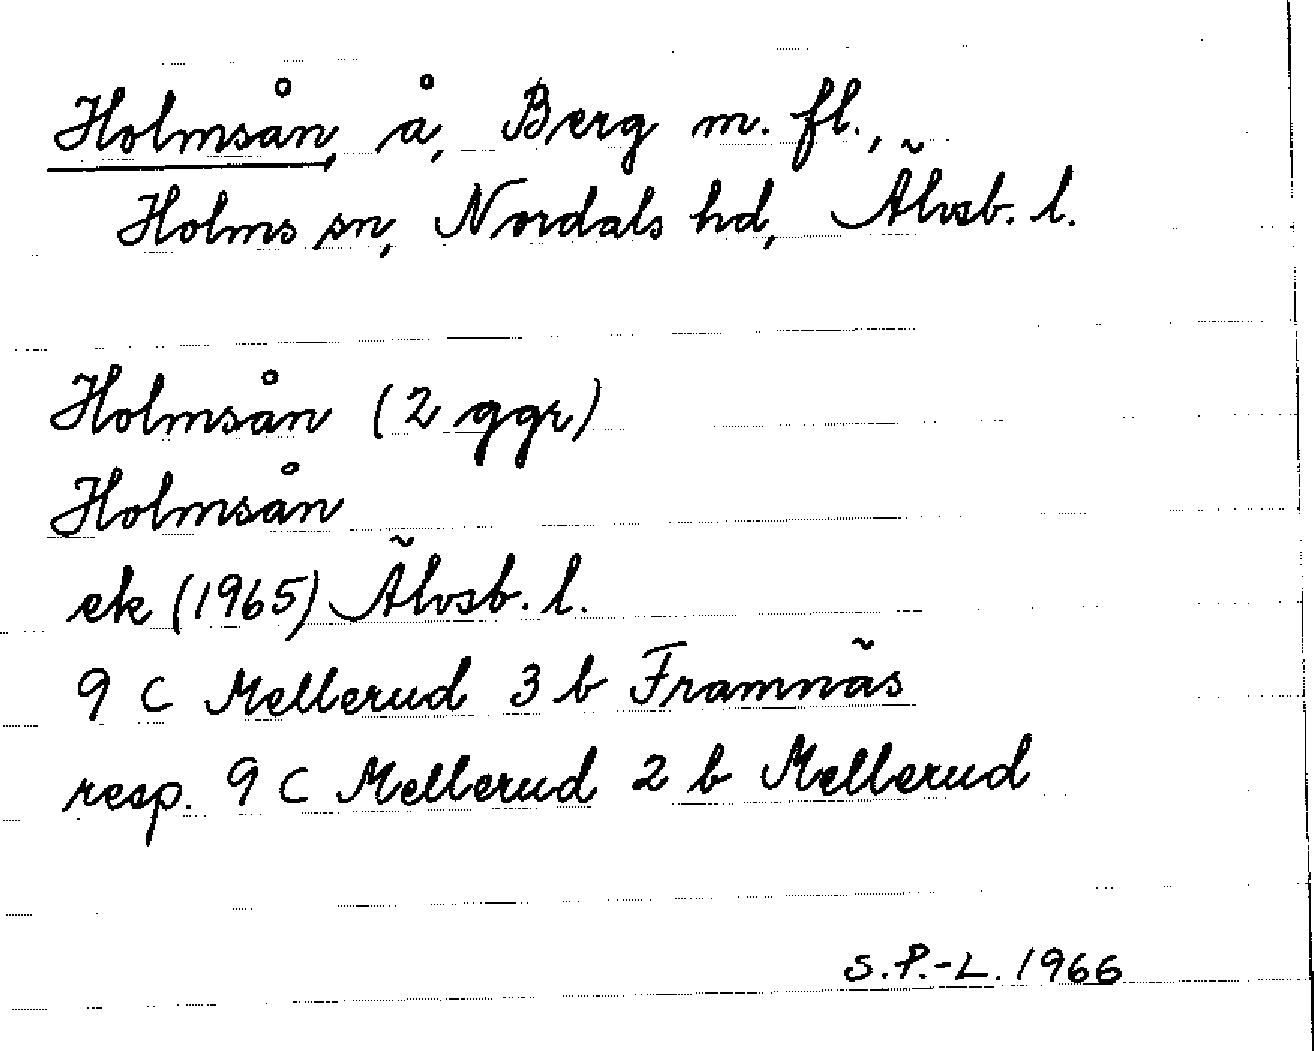 Holmsån, å, Berg m. fl.,
Holms sn, Nordals hd, Älvsb. l.
Holmsån (2 ggr)
Holmsån
ek (1965) Älvsb. l.
9 C Mellerud 3 b Framnäs
resp. 9 C Mellerud 2 b Mellerud
S.P.-L. 1966